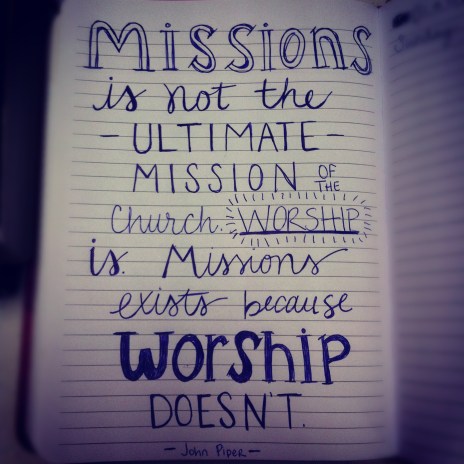 Missions
is not the
- ULTIMATE -
MISSION OF THE
Church. WORSHIP
is. Missions
exists because
Worship
DOESN'T.
- John Piper -